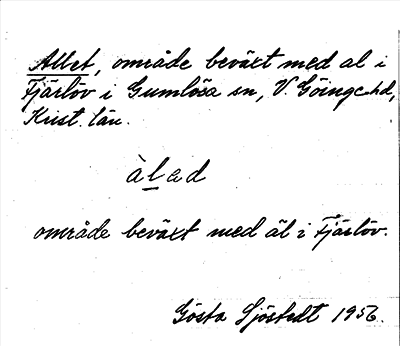 Allet, område beväxt med al i
Fjärlöv i Gumlösa sn, V. Göinge hd,
Krist. län.
àl̲ad
område beväxt med äl i Fjärlöv.
Gösta Sjöstedt 1956.